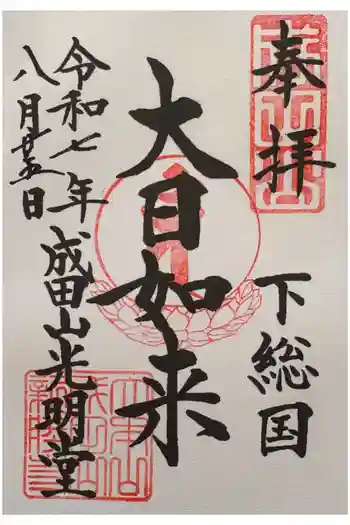 奉拝
下総国
大日如来
成田山光明堂
令和七年
八月廿五日